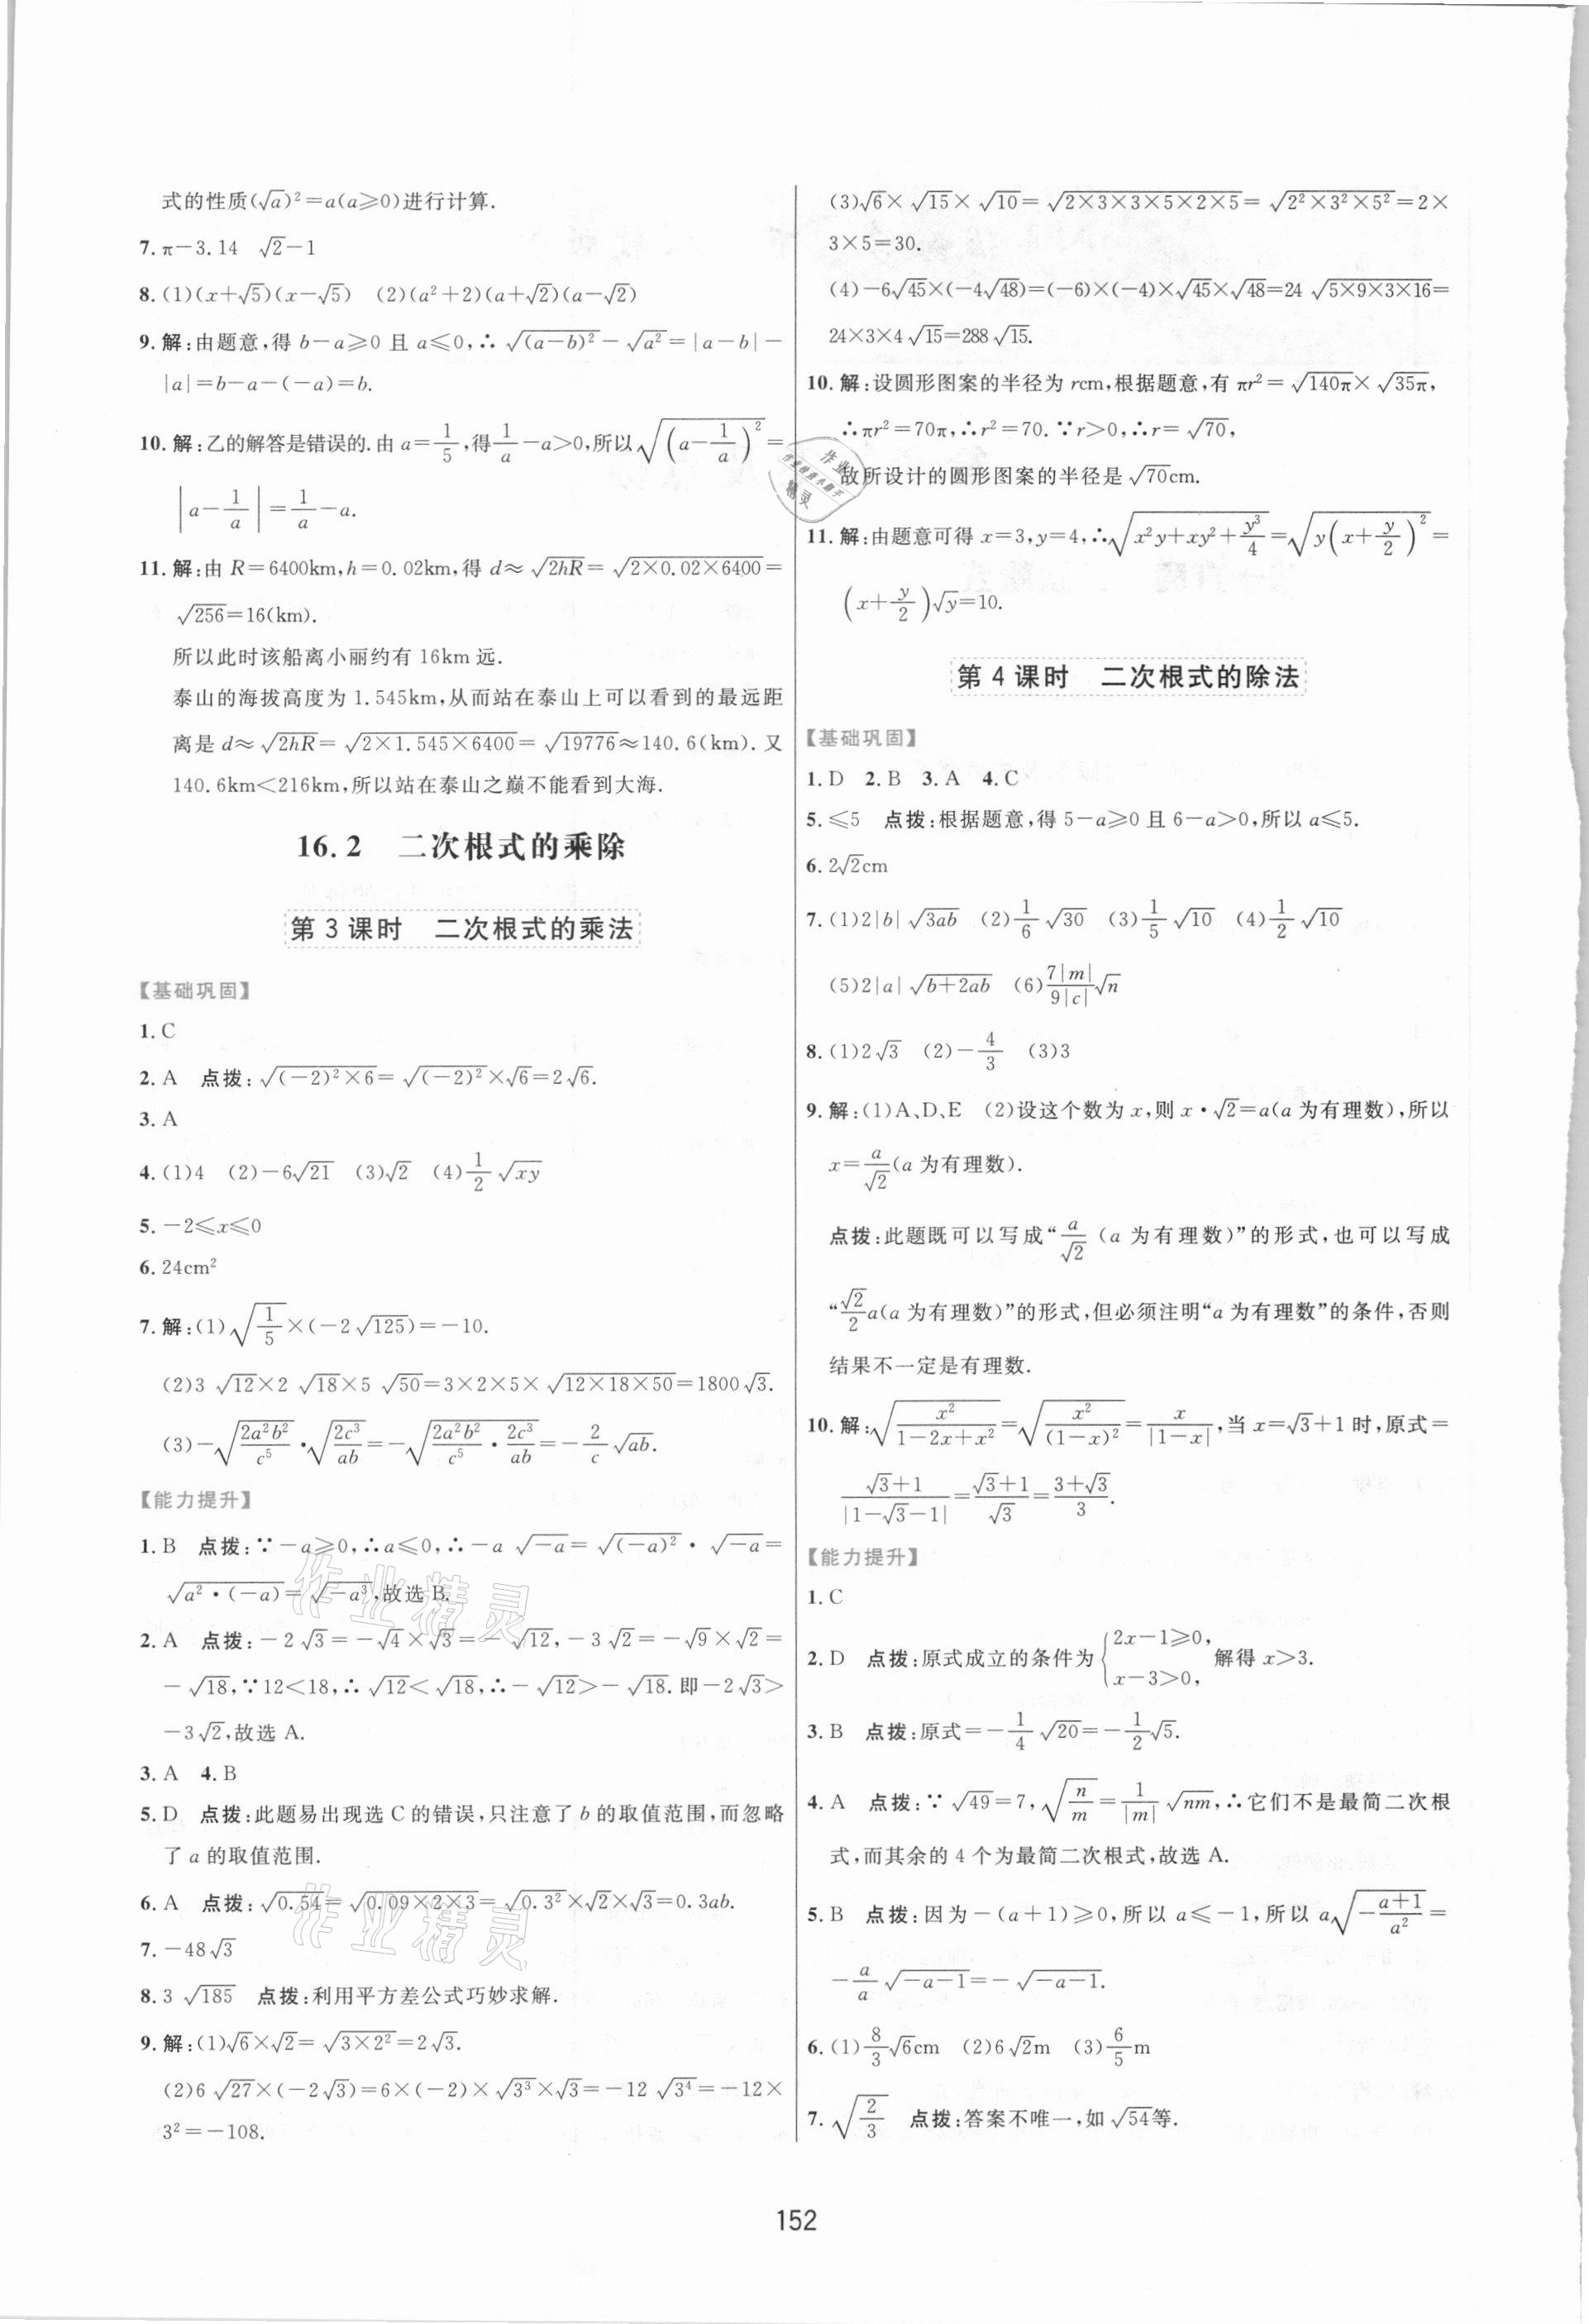 式的性质(√a)²=a(a⩾0)进行计算.
7. π-3.14 √2-1
8. (1)(x+√5)(x-√5) (2)(a²+2)(a+√2)(a-√2)
9. 解:由题意,得 b-a⩾0 且 a⩽0,∴√((a-b)²)-√(a²)=|a-b|-
|a|=b-a-(-a)=b.
10. 解:乙的解答是错误的.由 a=1/5,得1/a-a>0,所以√((a-1/a)²)=
|a-1/a|=1/a-a.
11. 解:由 R=6400km,h=0.02km,得 d≈√(2hR)=√(2×0.02×6400)=
√256=16(km).
所以此时该船离小丽约有 16km 远.
泰山的海拔高度为 1.545km,从而站在泰山上可以看到的最远距
离是 d≈√(2hR)=√(2×1.545×6400)=√19776≈140.6(km).又
140.6km<216km,所以站在泰山之巅不能看到大海.
16.2 二次根式的乘除
第 3 课时 二次根式的乘法
【基础巩固】
1. C
2. A 点拨:√((-2)²×6)=√((-2)²)×√6=2√6.
3. A
4. (1)4 (2)-6√21 (3)√2 (4)1/2√(xy)
5. -2⩽x⩽0
6. 24cm²
7. 解:(1)√(1/5)×(-2√125)=-10.
(2)3√12×2√18×5√50=3×2×5×√(12×18×50)=1800√3.
(3)-√(2a²b²/c⁵)·√(2c³/ab)=-√(2a²b²/c⁵·2c³/ab)=-2/c√(ab).
【能力提升】
1. B 点拨:∵-a⩾0,∴a⩽0,∴-a√(-a)=√((-a)²)·√(-a)=
√(a²·(-a))=√(-a³),故选 B.
2. A 点拨:-2√3=-√4×√3=-√12,-3√2=-√9×√2=
-√18,∵12<18,∴√12<√18,∴-√12>-√18.即-2√3>
-3√2,故选 A.
3. A 4. B
5. D 点拨:此题易出现选 C 的错误,只注意了 b 的取值范围,而忽略
了 a 的取值范围.
6. A 点拨:√0.54=√(0.09×2×3)=√(0.3²)×√2×√3=0.3ab.
7. -48√3
8. 3√185 点拨:利用平方差公式巧妙求解.
9. 解:(1)√6×√2=√(3×2²)=2√3.
(2)6√27×(-2√3)=6×(-2)×√(3³)×√3=-12√(3⁴)=-12×
3²=-108.
(3)√6×√15×√10=√(2×3×3×5×2×5)=√(2²×3²×5²)=2×
3×5=30.
(4)-6√45×(-4√48)=(-6)×(-4)×√45×√48=24√(5×9×3×16)=
24×3×4√15=288√15.
10. 解:设圆形图案的半径为 rcm,根据题意,有 πr²=√(140π)×√(35π),
∴πr²=70π,∴r²=70.∵r>0,∴r=√70,
故所设计的圆形图案的半径是√70cm.
11. 解:由题意可得 x=3,y=4,∴√(x²y+xy²+y³/4)=√(y(x+y/2)²)=
(x+y/2)√y=10.
第 4 课时 二次根式的除法
【基础巩固】
1. D 2. B 3. A 4. C
5. ⩽5 点拨:根据题意,得 5-a⩾0 且 6-a>0,所以 a⩽5.
6. 2√2cm
7. (1)2|b|√(3ab) (2)1/6√30 (3)1/5√10 (4)1/2√10
(5)2|a|√(b+2ab) (6)7|m|/9|c|√n
8. (1)2√3 (2)-4/3 (3)3
9. 解:(1)A、D、E (2)设这个数为 x,则 x·√2=a(a 为有理数),所以
x=a/√2(a 为有理数).
点拨:此题既可以写成“a/√2(a 为有理数)”的形式,也可以写成
“√2/2a(a 为有理数)”的形式,但必须注明“a 为有理数”的条件,否则
结果不一定是有理数.
10. 解:√(x²/(1-2x+x²))=√(x²/(1-x)²)=x/|1-x|,当 x=√3+1 时,原式=
(√3+1)/|1-√3-1|=(√3+1)/√3=(3+√3)/3.
【能力提升】
1. C
2. D 点拨:原式成立的条件为{2x-1⩾0, x-3>0, 解得 x>3.
3. B 点拨:原式=-1/4√20=-1/2√5.
4. A 点拨:∵√49=7,√(n/m)=1/|m|√(nm),∴它们不是最简二次根
式,而其余的 4 个为最简二次根式,故选 A.
5. B 点拨:因为-(a+1)⩾0,所以 a⩽-1,所以 a√(-(a+1)/a²)=
-a/a√(-a-1)=-√(-a-1).
6. (1)8/3√6cm (2)6√2m (3)6/5m
7. √(2/3) 点拨:答案不唯一,如√54等.
152
作业精灵
作业精灵
作业
作业快速小助手
精灵